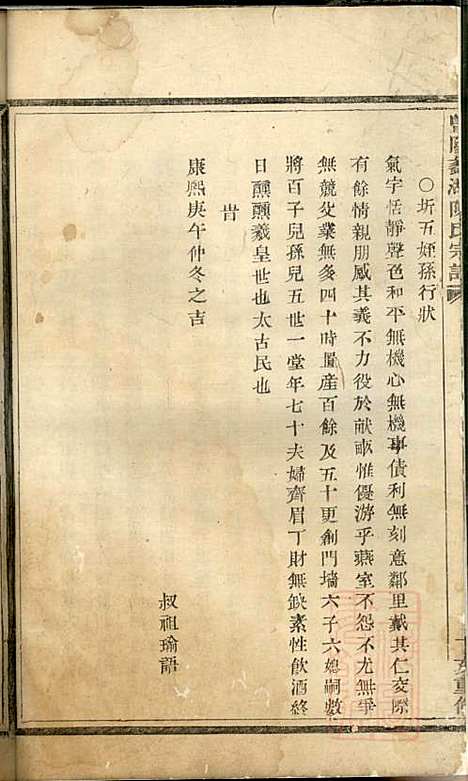 ○圻五姪孫行狀
氣宇恬靜聲色和平無機心無機事債利無刻意鄰里戴其仁交際
有餘情親朋感其義不力役於献畝惟優游乎燕室不怨不尤無爭
無競父業無多四十時置産百餘及五十更創門墻六子六媳嗣數
將百子兒孫兒五世一堂年七十夫婦齊眉丁財無缺素性飲酒終
日醺醺羲皇世也太古民也
旹
康熙庚午仲冬之吉
叔祖瑜語
陳氏宗譜